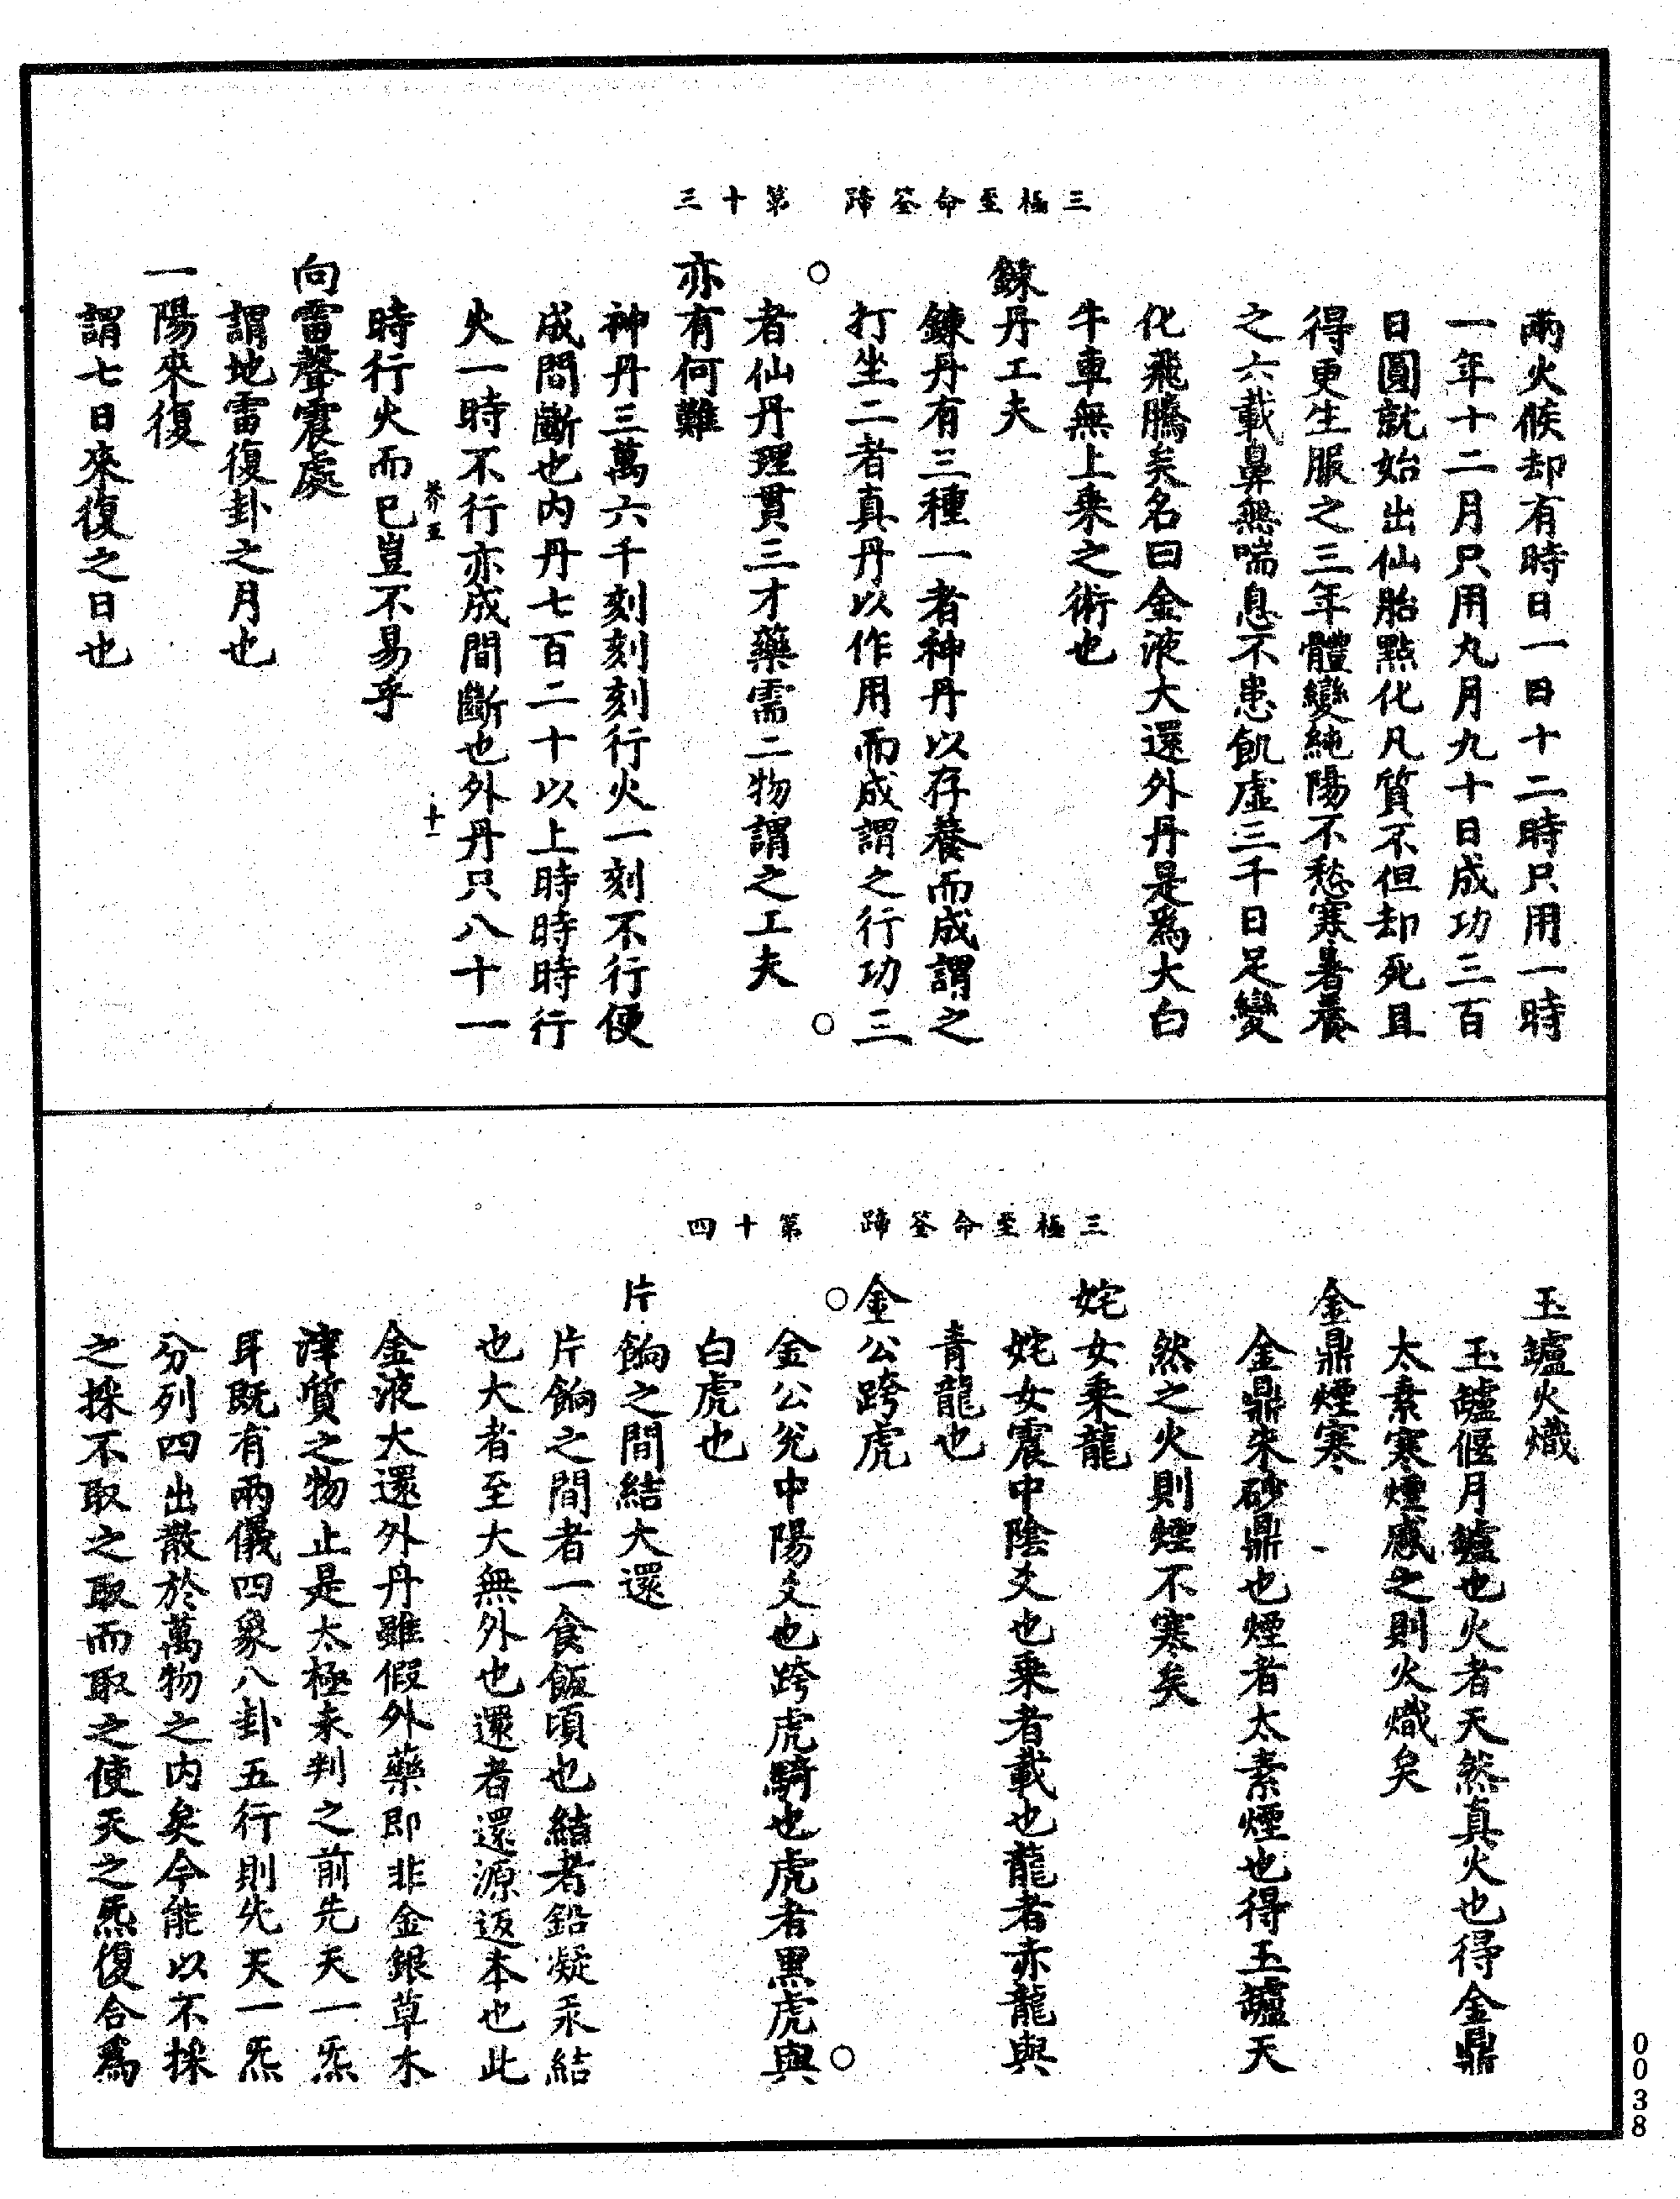 三極至命筌蹄　第十三
兩火候却有時日一日十二時只用一時
一年十二月只用九月九十日成功三百
日圓就始出仙胎點化凡質不但却死且
得更生服之三年體變純陽不愁寒暑養
之六載鼻無喘息不患飢虛三千日足變
化飛騰矣名曰金液大還外丹是爲大白
牛車無上乗之術也
鍊丹工夫
鍊丹有三種一者神丹以存養而成謂之
打坐二者真丹以作用而成謂之行功三
者仙丹理貫三才藥需二物謂之工夫
○　○
亦有何難
神丹三萬六千刻刻刻行火一刻不行便
成間斷也内丹七百二十以上時時時行
火一時不行亦成間斷也外丹只八十一
芥五　十一
時行火而已豈不易乎
向雷聲震處
謂地雷復卦之月也
一陽來復
謂七日來復之日也
三極至命筌蹄　第十四
玉罏火熾
玉罏偃月罏也火者天然真火也得金鼎
太素寒煙感之則火熾矣
金鼎煙寒
金鼎朱砂鼎也煙者太素煙也得玉罏天
然之火則煙不寒矣
姹女乗龍
姹女震中陰爻也乗者載也龍者赤龍與
青龍也
金公跨虎
○　○
金公兊中陽爻也跨虎騎也虎者黑虎與
白虎也
片餉之間結大還
片餉之間者一食飯頃也結者鉛凝汞結
也大者至大無外也還者還源返本也此
金液大還外丹雖假外藥即非金銀草木
滓質之物止是太極未判之前先天一炁
耳既有兩儀四象八卦五行則先天一炁
分列四出散於萬物之内矣今能以不採
之採不取之取而取之使天之炁復合爲
0038